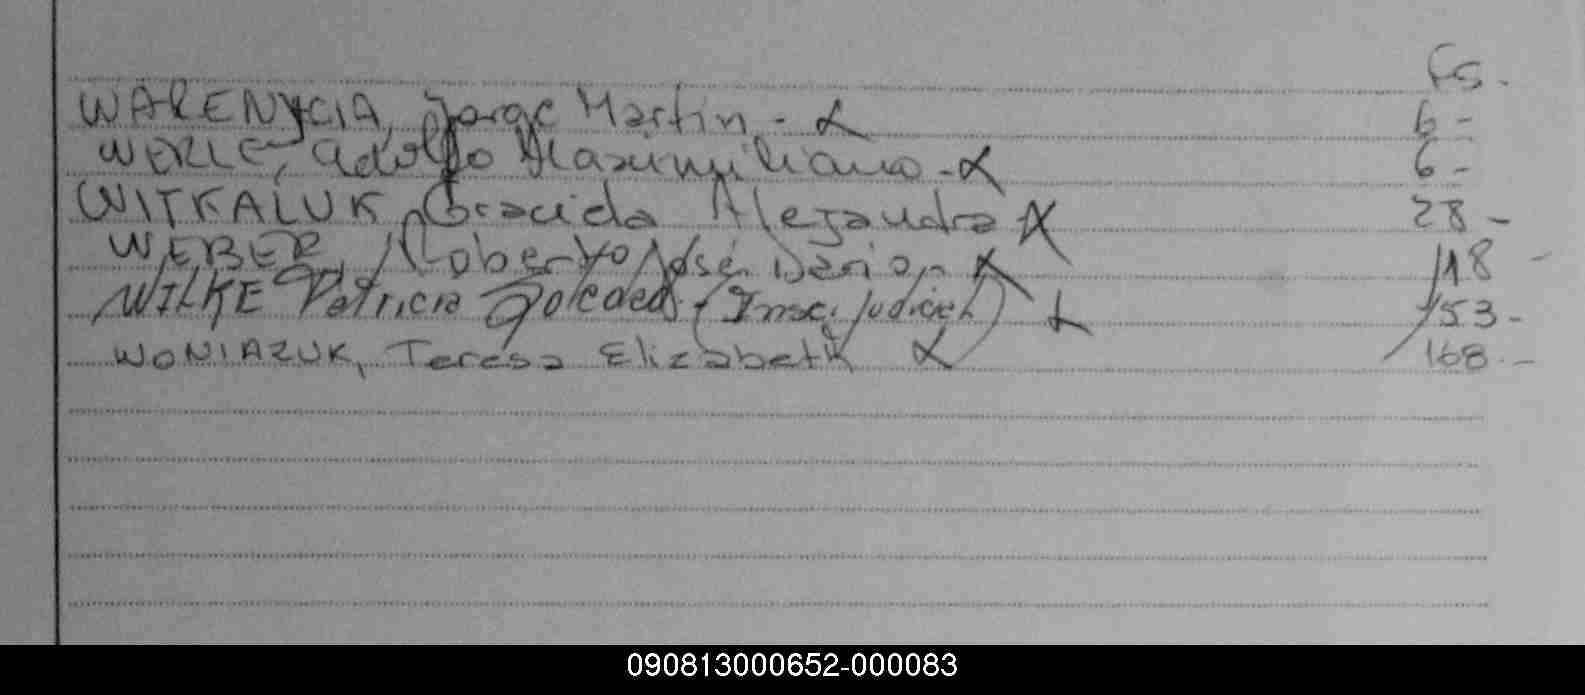 Fs.
WARENYCIA, Jorge Martin - 6 -
WERLE, Adolfo Maximiliano - 6 -
WITKALUK, Graciela Alejandra 28 -
WEBER, Roberto José Dario - 118 -
WILKE Patricia (Insc. Judicial) 153 -
WONIAZUK, Teresa Elizabeth 168 -
090813000652-000083